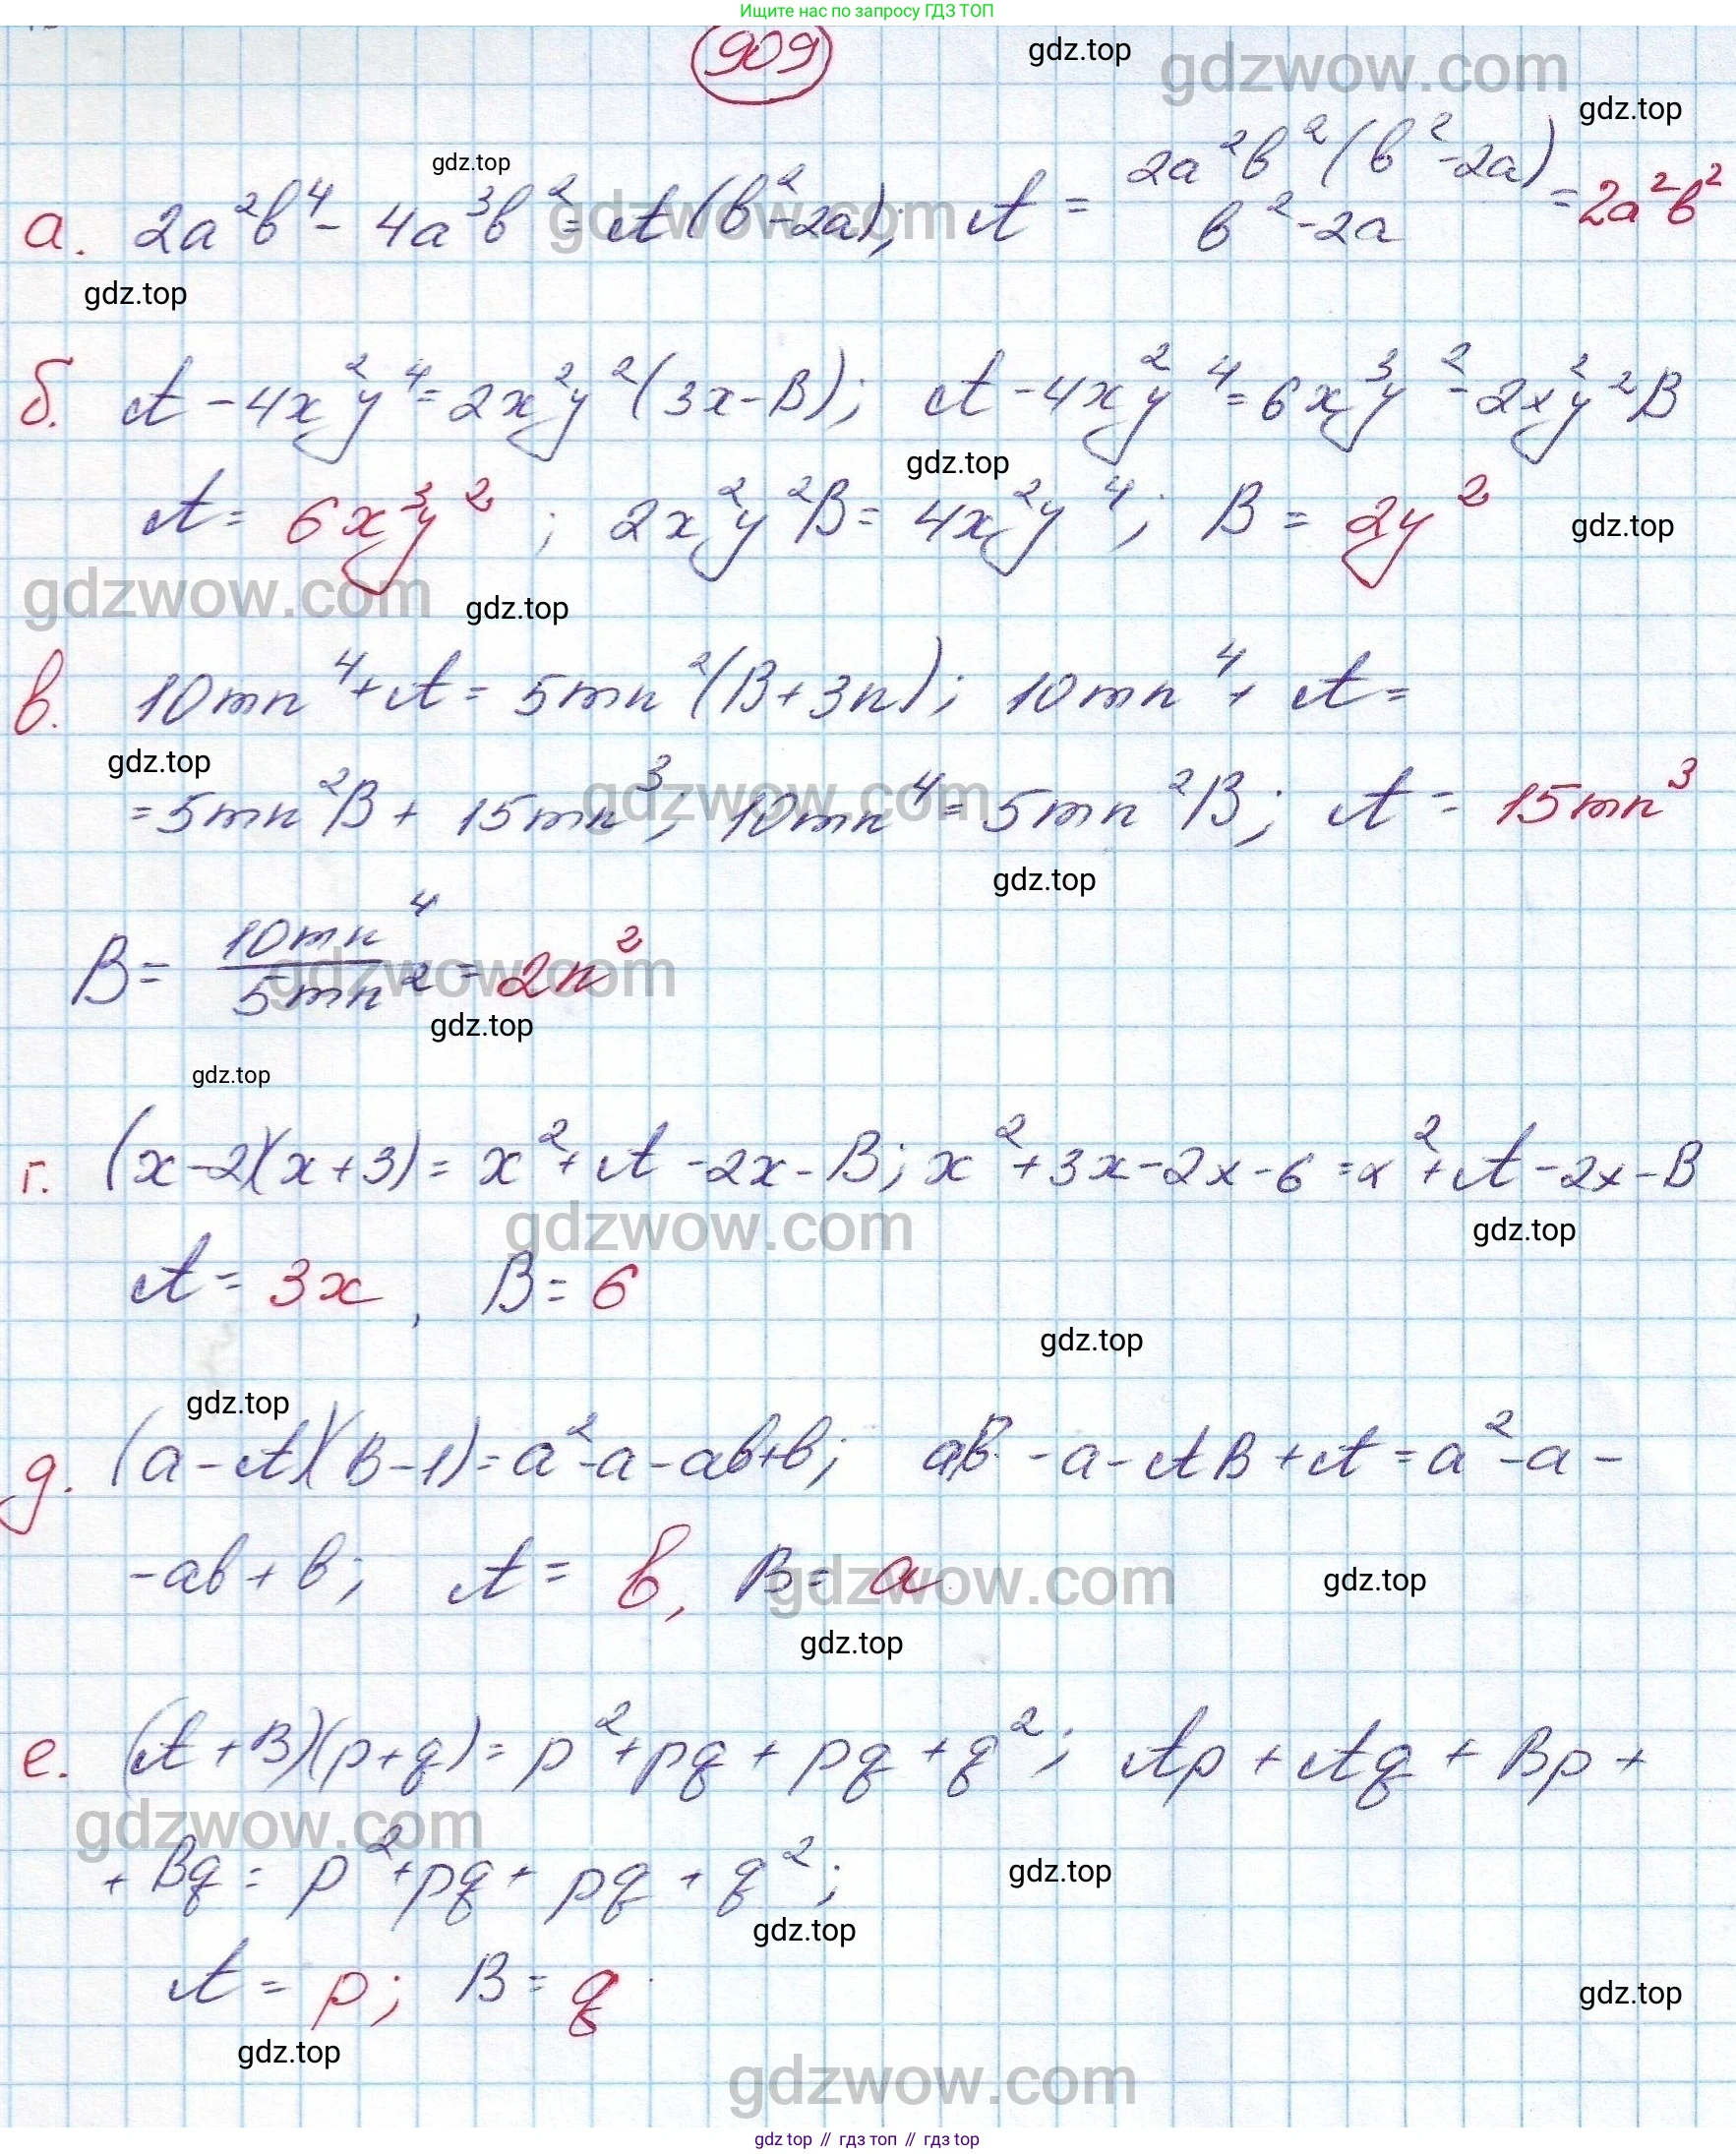 Ищите нас по запросу ГДЗ ТОП
909
gdz.top
gdzwow.com
gdz.top
gdz.top
а. 2a²b⁴ - 4a³b² = A(b² - 2a); A = 2a²b²(b² - 2a) / b² - 2a = 2a²b²
gdzwow.com
gdz.top
б. A - 4x²y⁴ = 2x²y²(3x - B); A - 4x²y⁴ = 6x³y² - 2x²y²B
gdz.top
A = 6x³y²; 2x²y²B = 4x²y⁴; B = 2y²
gdz.top
gdzwow.com
gdz.top
в. 10mn⁴ + A = 5mn²(B + 3n); 10mn⁴ + A =
gdz.top
= 5mn²B + 15mn³; 10mn⁴ = 5mn²B; A = 15mn³
gdzwow.com
gdz.top
B = 10mn⁴ / 5mn² = 2n²
gdzwow.com
gdz.top
gdz.top
г. (x - 2)(x + 3) = x² + A - 2x - B; x² + 3x - 2x - 6 = x² + A - 2x - B
gdzwow.com
gdz.top
A = 3x, B = 6
gdz.top
gdz.top
д. (a - A)(B - 1) = a² - a - ab + b; aB - a - AB + A = a² - a -
- ab + b; A = b, B = a
gdzwow.com
gdz.top
gdz.top
е. (A + B)(p + q) = p² + pq + pq + q²; Ap + Aq + Bp +
gdzwow.com
+ Bq = p² + pq + pq + q²;
gdz.top
gdz.top
A = p; B = q
gdz.top
gdz.top
gdzwow.com
gdz.top // гдз топ // гдз top